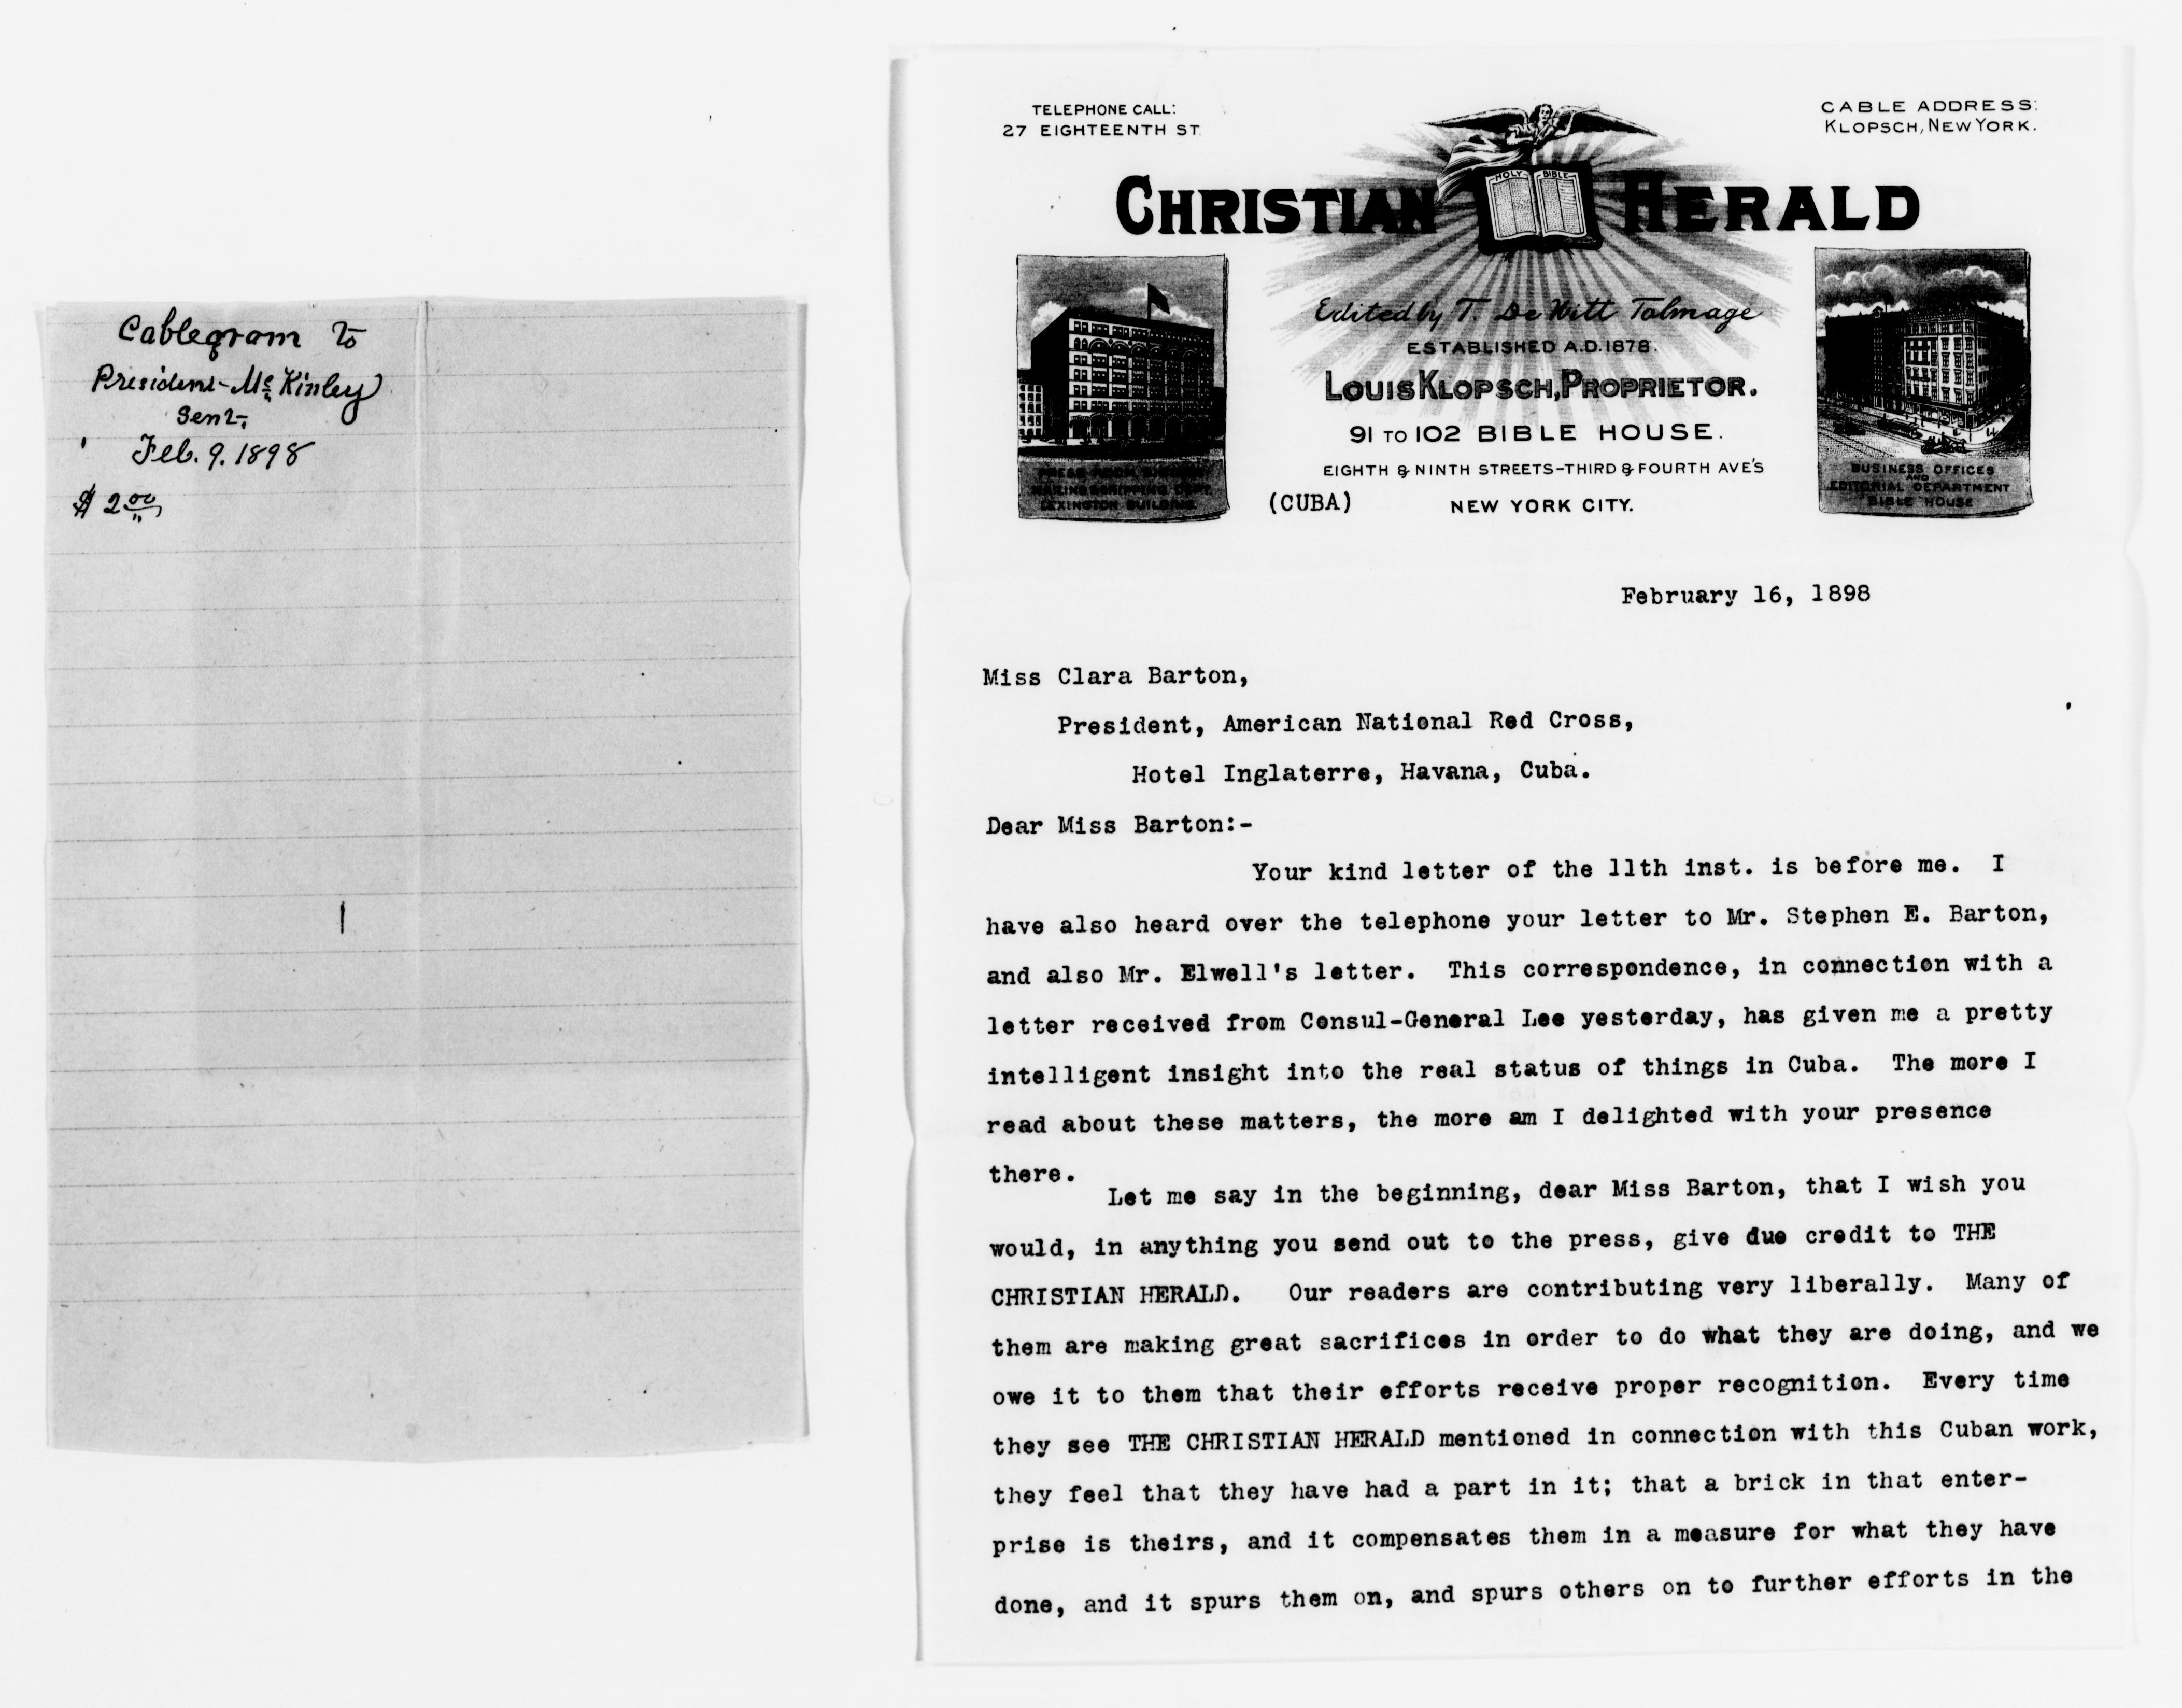 Cablegram to
President Mc Kinley
Sent
Feb. 9. 1898
$ 2.00
TELEPHONE CALL:
27 EIGHTEENTH ST.
CABLE ADDRESS:
KLOPSCH, NEW YORK.
HOLY BIBLE
CHRISTIAN HERALD
Edited by T. De Witt Talmage
ESTABLISHED A.D. 1878.
LOUIS KLOPSCH, PROPRIETOR.
91 TO 102 BIBLE HOUSE.
EIGHTH & NINTH STREETS-THIRD & FOURTH AVE'S
(CUBA) NEW YORK CITY.
LEXINGTON BUILDING
BUSINESS OFFICES
AND
EDITORIAL DEPARTMENT
BIBLE HOUSE
February 16, 1898
Miss Clara Barton,
President, American National Red Cross,
Hotel Inglaterre, Havana, Cuba.
Dear Miss Barton:-
Your kind letter of the 11th inst. is before me. I
have also heard over the telephone your letter to Mr. Stephen E. Barton,
and also Mr. Elwell's letter. This correspondence, in connection with a
letter received from Consul-General Lee yesterday, has given me a pretty
intelligent insight into the real status of things in Cuba. The more I
read about these matters, the more am I delighted with your presence
there.
Let me say in the beginning, dear Miss Barton, that I wish you
would, in anything you send out to the press, give due credit to THE
CHRISTIAN HERALD. Our readers are contributing very liberally. Many of
them are making great sacrifices in order to do what they are doing, and we
owe it to them that their efforts receive proper recognition. Every time
they see THE CHRISTIAN HERALD mentioned in connection with this Cuban work,
they feel that they have had a part in it; that a brick in that enter-
prise is theirs, and it compensates them in a measure for what they have
done, and it spurs them on, and spurs others on to further efforts in the